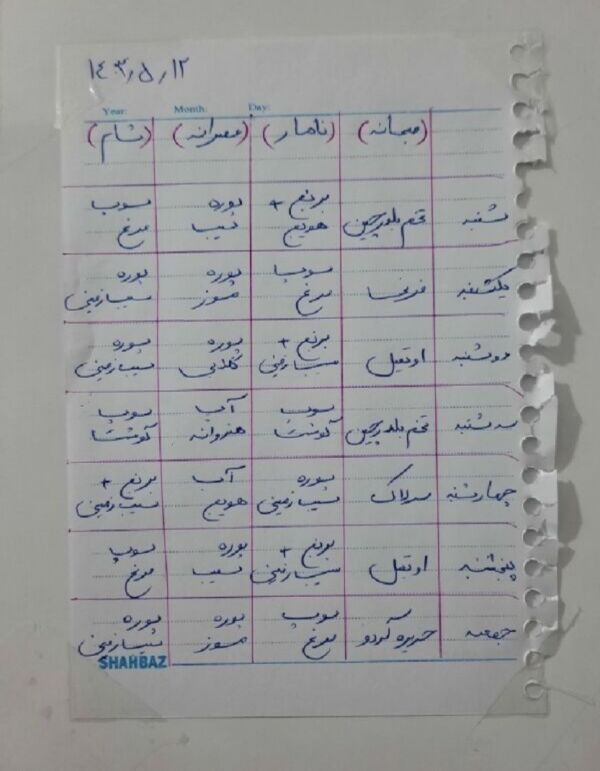 ۱۴۰۳٫۵٫۱۲
Year: Month: Day:
(صبحانه) (ناهار) (عصرانه) (شام)
شنبه تخم بلدرچین برنج + هویج پوره سیب سوپ مرغ
یکشنبه فرنی سوپ مرغ پوره موز پوره سیب‌زمینی
دوشنبه اوتمیل برنج + سیب‌زمینی پوره گلابی پوره سیب‌زمینی
سه شنبه تخم بلدرچین سوپ گوشت آب هندوانه سوپ گوشت
چهارشنبه سرلاک پوره سیب‌زمینی آب هویج برنج + سیب‌زمینی
پنجشنبه اوتمیل برنج + سیب‌زمینی پوره سیب سوپ مرغ
جمعه حریره گردو سوپ مرغ پوره موز پوره سیب‌زمینی
SHAHBAZ